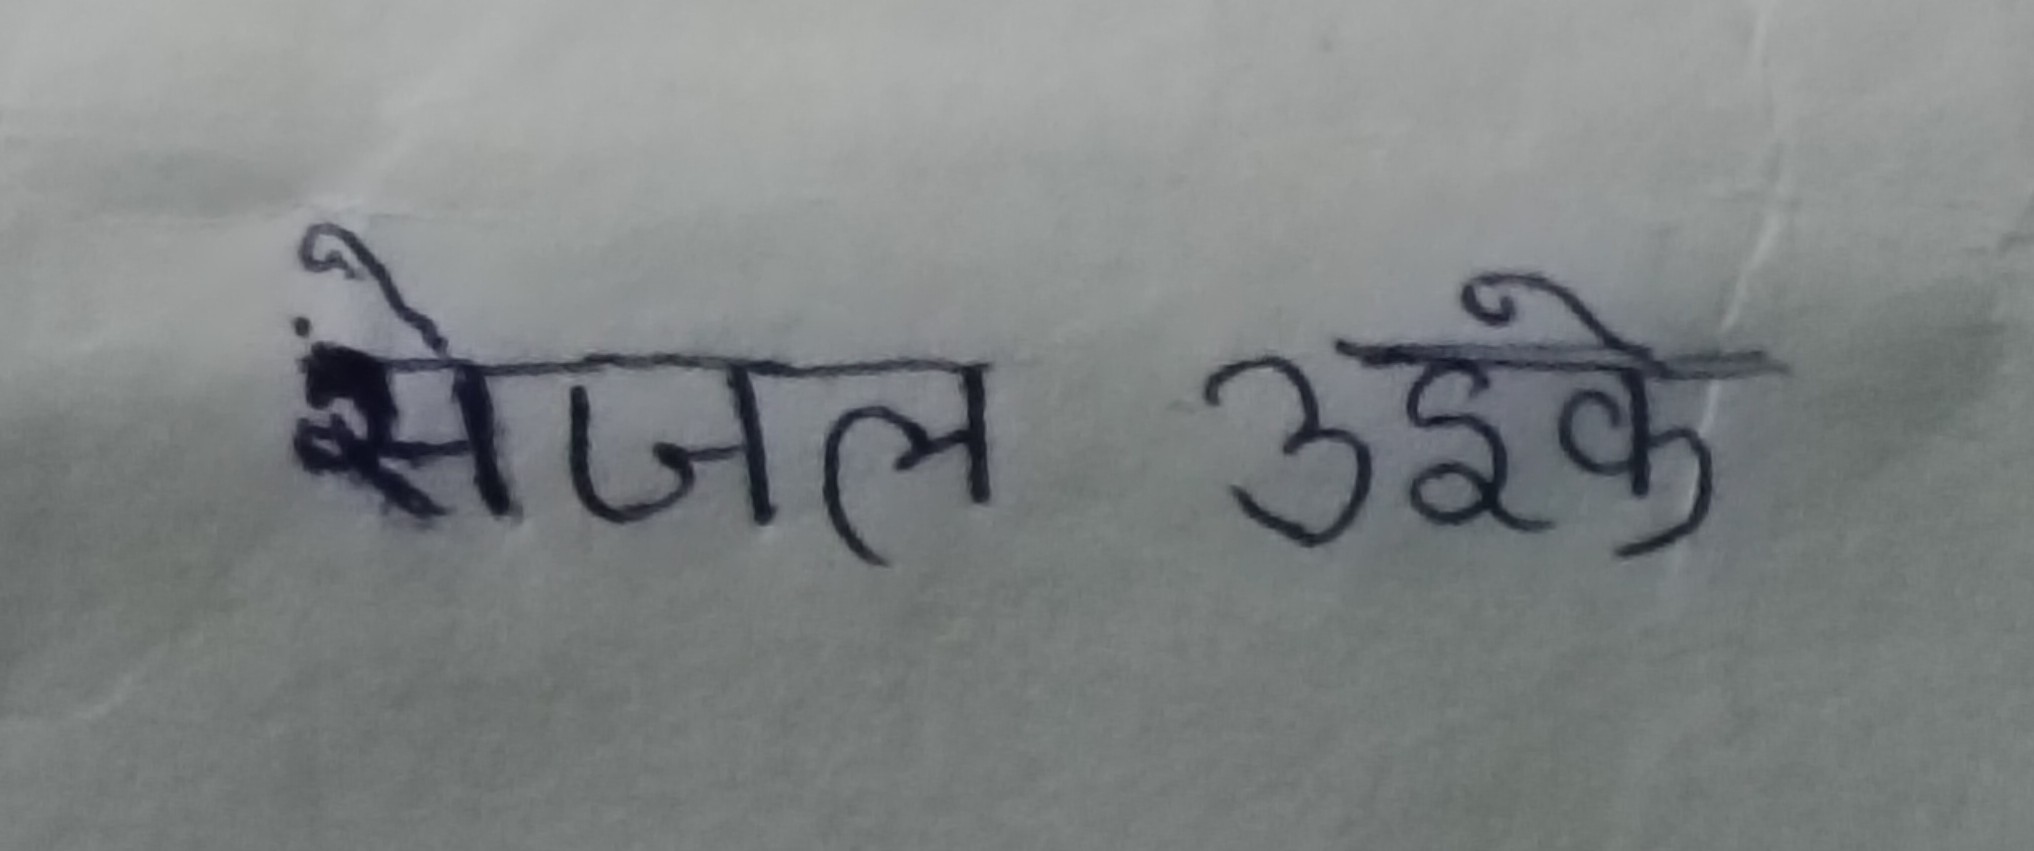 सेजल उइके